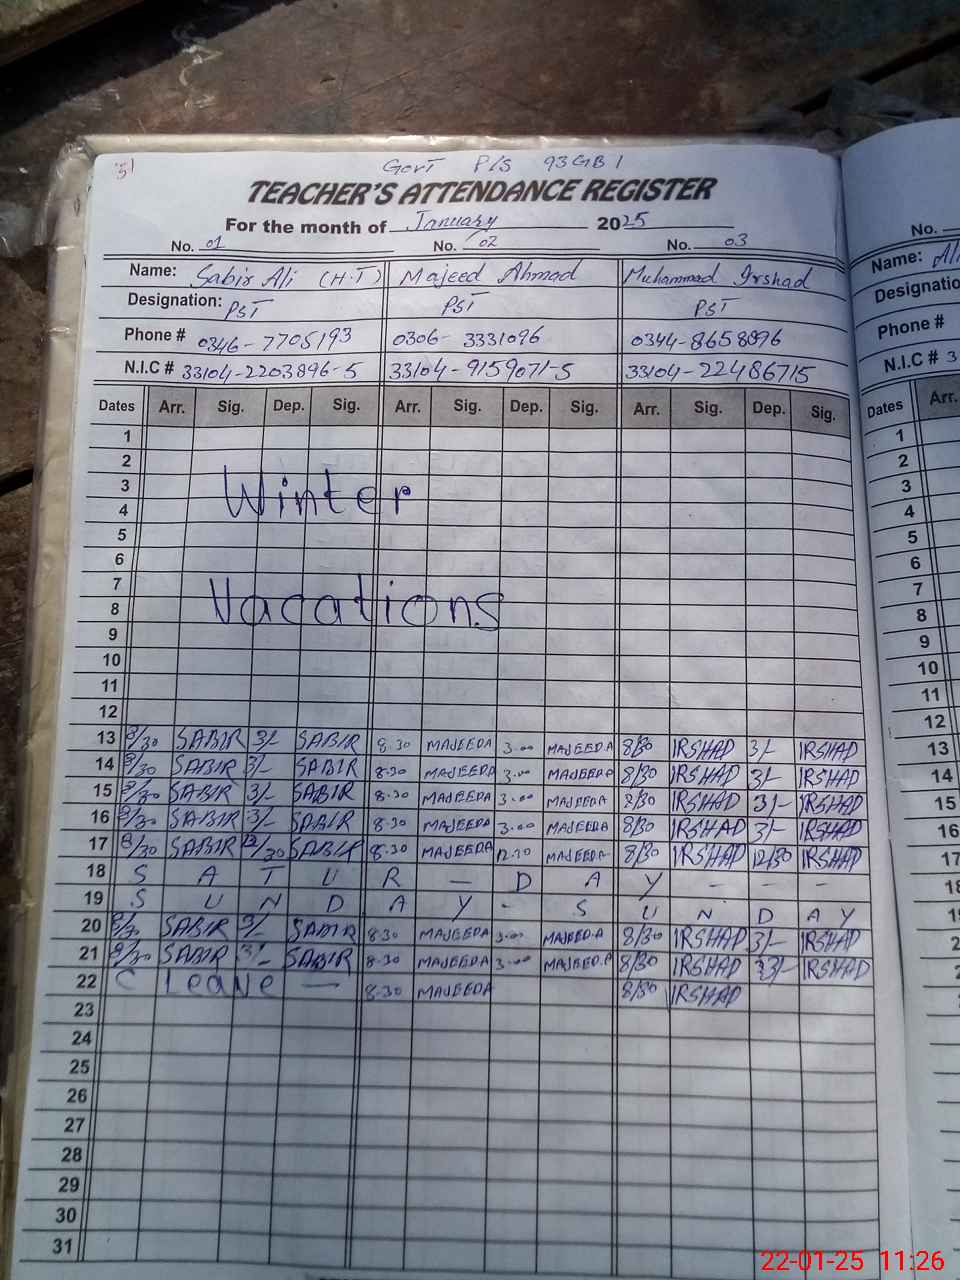 Govt P/S 93GB 1
TEACHER'S ATTENDANCE REGISTER
For the month of January 2025
No. 01 No. 02 No. 03
Name: Sabir Ali (H.T) Majeed Ahmad Muhammad Irshad
Designation: PST PST PST
Phone # 0346-7705193 0306-3331096 0344-8658896
N.I.C # 33104-2203896-5 33104-9159071-5 33104-22486715
Dates Arr. Sig. Dep. Sig. Arr. Sig. Dep. Sig. Arr. Sig. Dep. Sig.
1
2
3
4
Winter
5
6
7
8
Vacations
9
10
11
12
13 8/30 SABIR 3/- SABIR 8.30 MAJEEDA 3.00 MAJEEDA 8/30 IRSHAD 3/- IRSHAD
14 8/30 SABIR 3/- SABIR 8.30 MAJEEDA 3.00 MAJEEDA 8/30 IRSHAD 3/- IRSHAD
15 8/30 SABIR 3/- SABIR 8.30 MAJEEDA 3.00 MAJEEDA 8/30 IRSHAD 3/- IRSHAD
16 8/30 SABIR 3/- SABIR 8.30 MAJEEDA 3.00 MAJEEDA 8/30 IRSHAD 3/- IRSHAD
17 8/30 SABIR 12/30 SABIR 8.30 MAJEEDA 12.30 MAJEEDA 8/30 IRSHAD 12/30 IRSHAD
18 S A T U R - D A Y - - -
19 S U N D A Y - S U N D A Y
20 8/30 SABIR 3/- SABIR 8.30 MAJEEDA 3.00 MAJEEDA 8/30 IRSHAD 3/- IRSHAD
21 8/30 SABIR 3/- SABIR 8.30 MAJEEDA 3.00 MAJEEDA 8/30 IRSHAD 33/- IRSHAD
22 C Leave - 8.30 MAJEEDA 8/30 IRSHAD
23
24
25
26
27
28
29
30
31
No.
Name:
Designatio
Phone #
N.I.C # 3
Dates Arr.
1
2
3
4
5
6
7
8
9
10
11
12
13
14
15
16
17
18
22-01-25 11:26